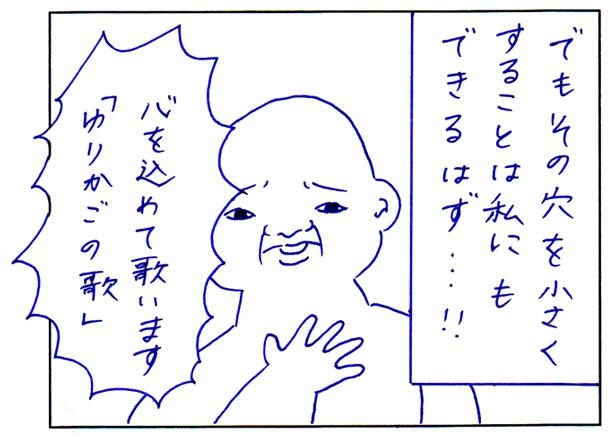 でもその穴を小さく
することは私にも
できるはず…!!
心を込めて歌います
「ゆりかごの歌」